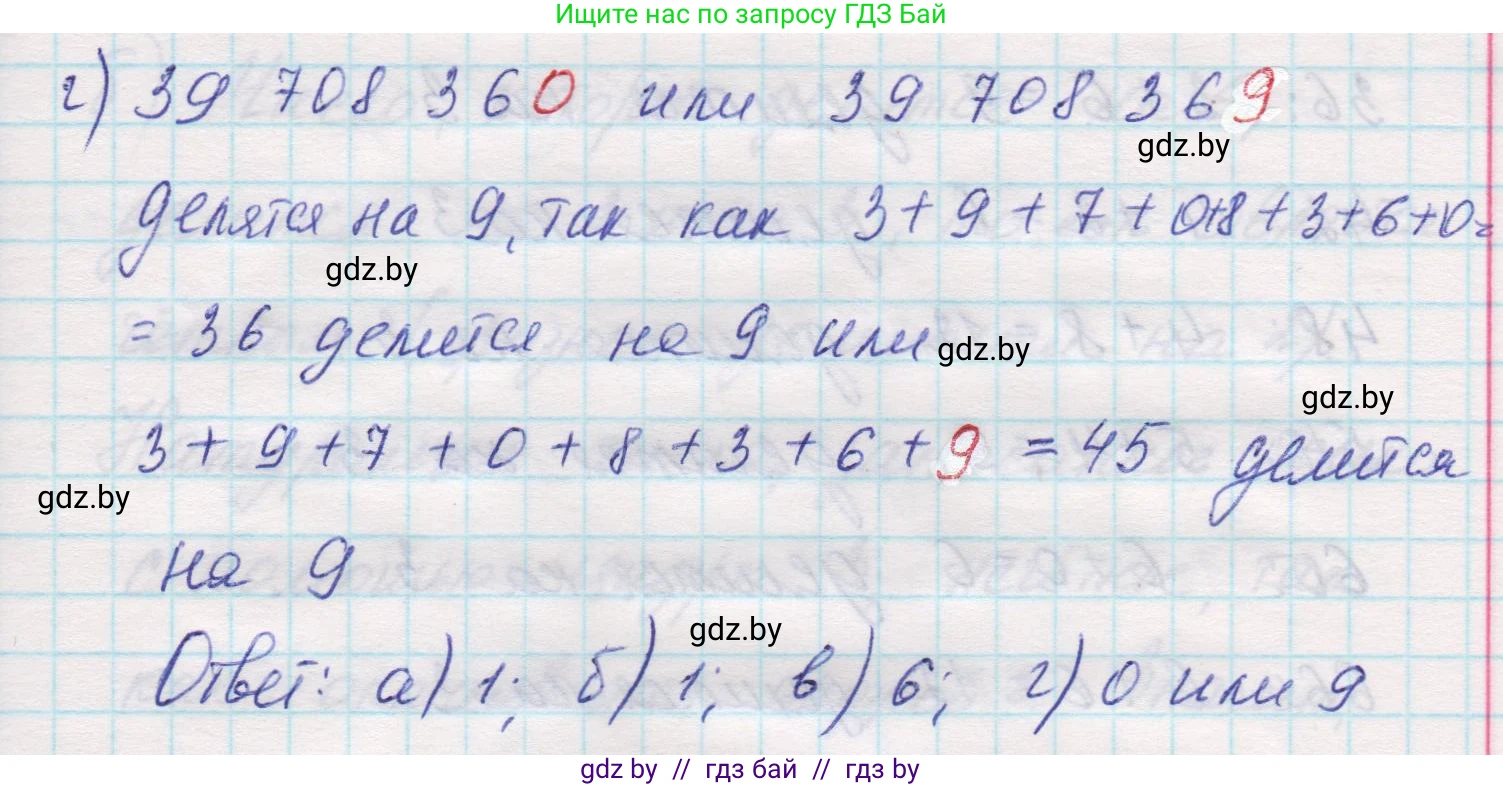 Ищите нас по запросу ГДЗ Бай
г) 39 708 360 или 39 708 369
gdz.by
делятся на 9, так как 3+9+7+0+8+3+6+0=
gdz.by
= 36 делится на 9 или
gdz.by
gdz.by
3+9+7+0+8+3+6+9=45 делится
gdz.by
на 9
gdz.by
Ответ: а) 1; б) 1; в) 6; г) 0 или 9
gdz by // гдз бай // гдз by